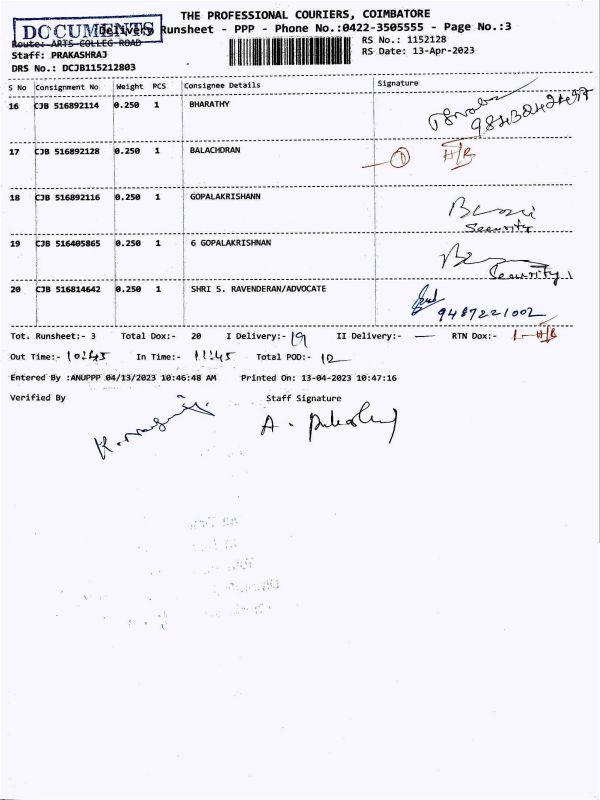 THE PROFESSIONAL COURIERS, COIMBATORE
DOCUMENTS
Delivery Runsheet - PPP - Phone No.:0422-3505555 - Page No.:3
Route: ARTS COLLEG ROAD
RS No.: 1152128
Staff: PRAKASHRAJ
RS Date: 13-Apr-2023
DRS No.: DCJB115212803
S No Consignment No Weight PCS Consignee Details Signature
16 CJB 516892114 0.250 1 BHARATHY
17 CJB 516892128 0.250 1 BALACHDRAN 1 H/R
18 CJB 516892116 0.250 1 GOPALAKRISHANN
Security
19 CJB 516405865 0.250 1 G GOPALAKRISHNAN
Security
20 CJB 516814642 0.250 1 SHRI S. RAVENDERAN/ADVOCATE
9487221002
Tot. Runsheet:- 3 Total Dox:- 20 I Delivery:- 19 II Delivery:- — RTN Dox:- 1-H/R
Out Time:- 10:45 In Time:- 11:45 Total POD:- 12
Entered By :ANUPPP 04/13/2023 10:46:48 AM Printed On: 13-04-2023 10:47:16
Verified By Staff Signature